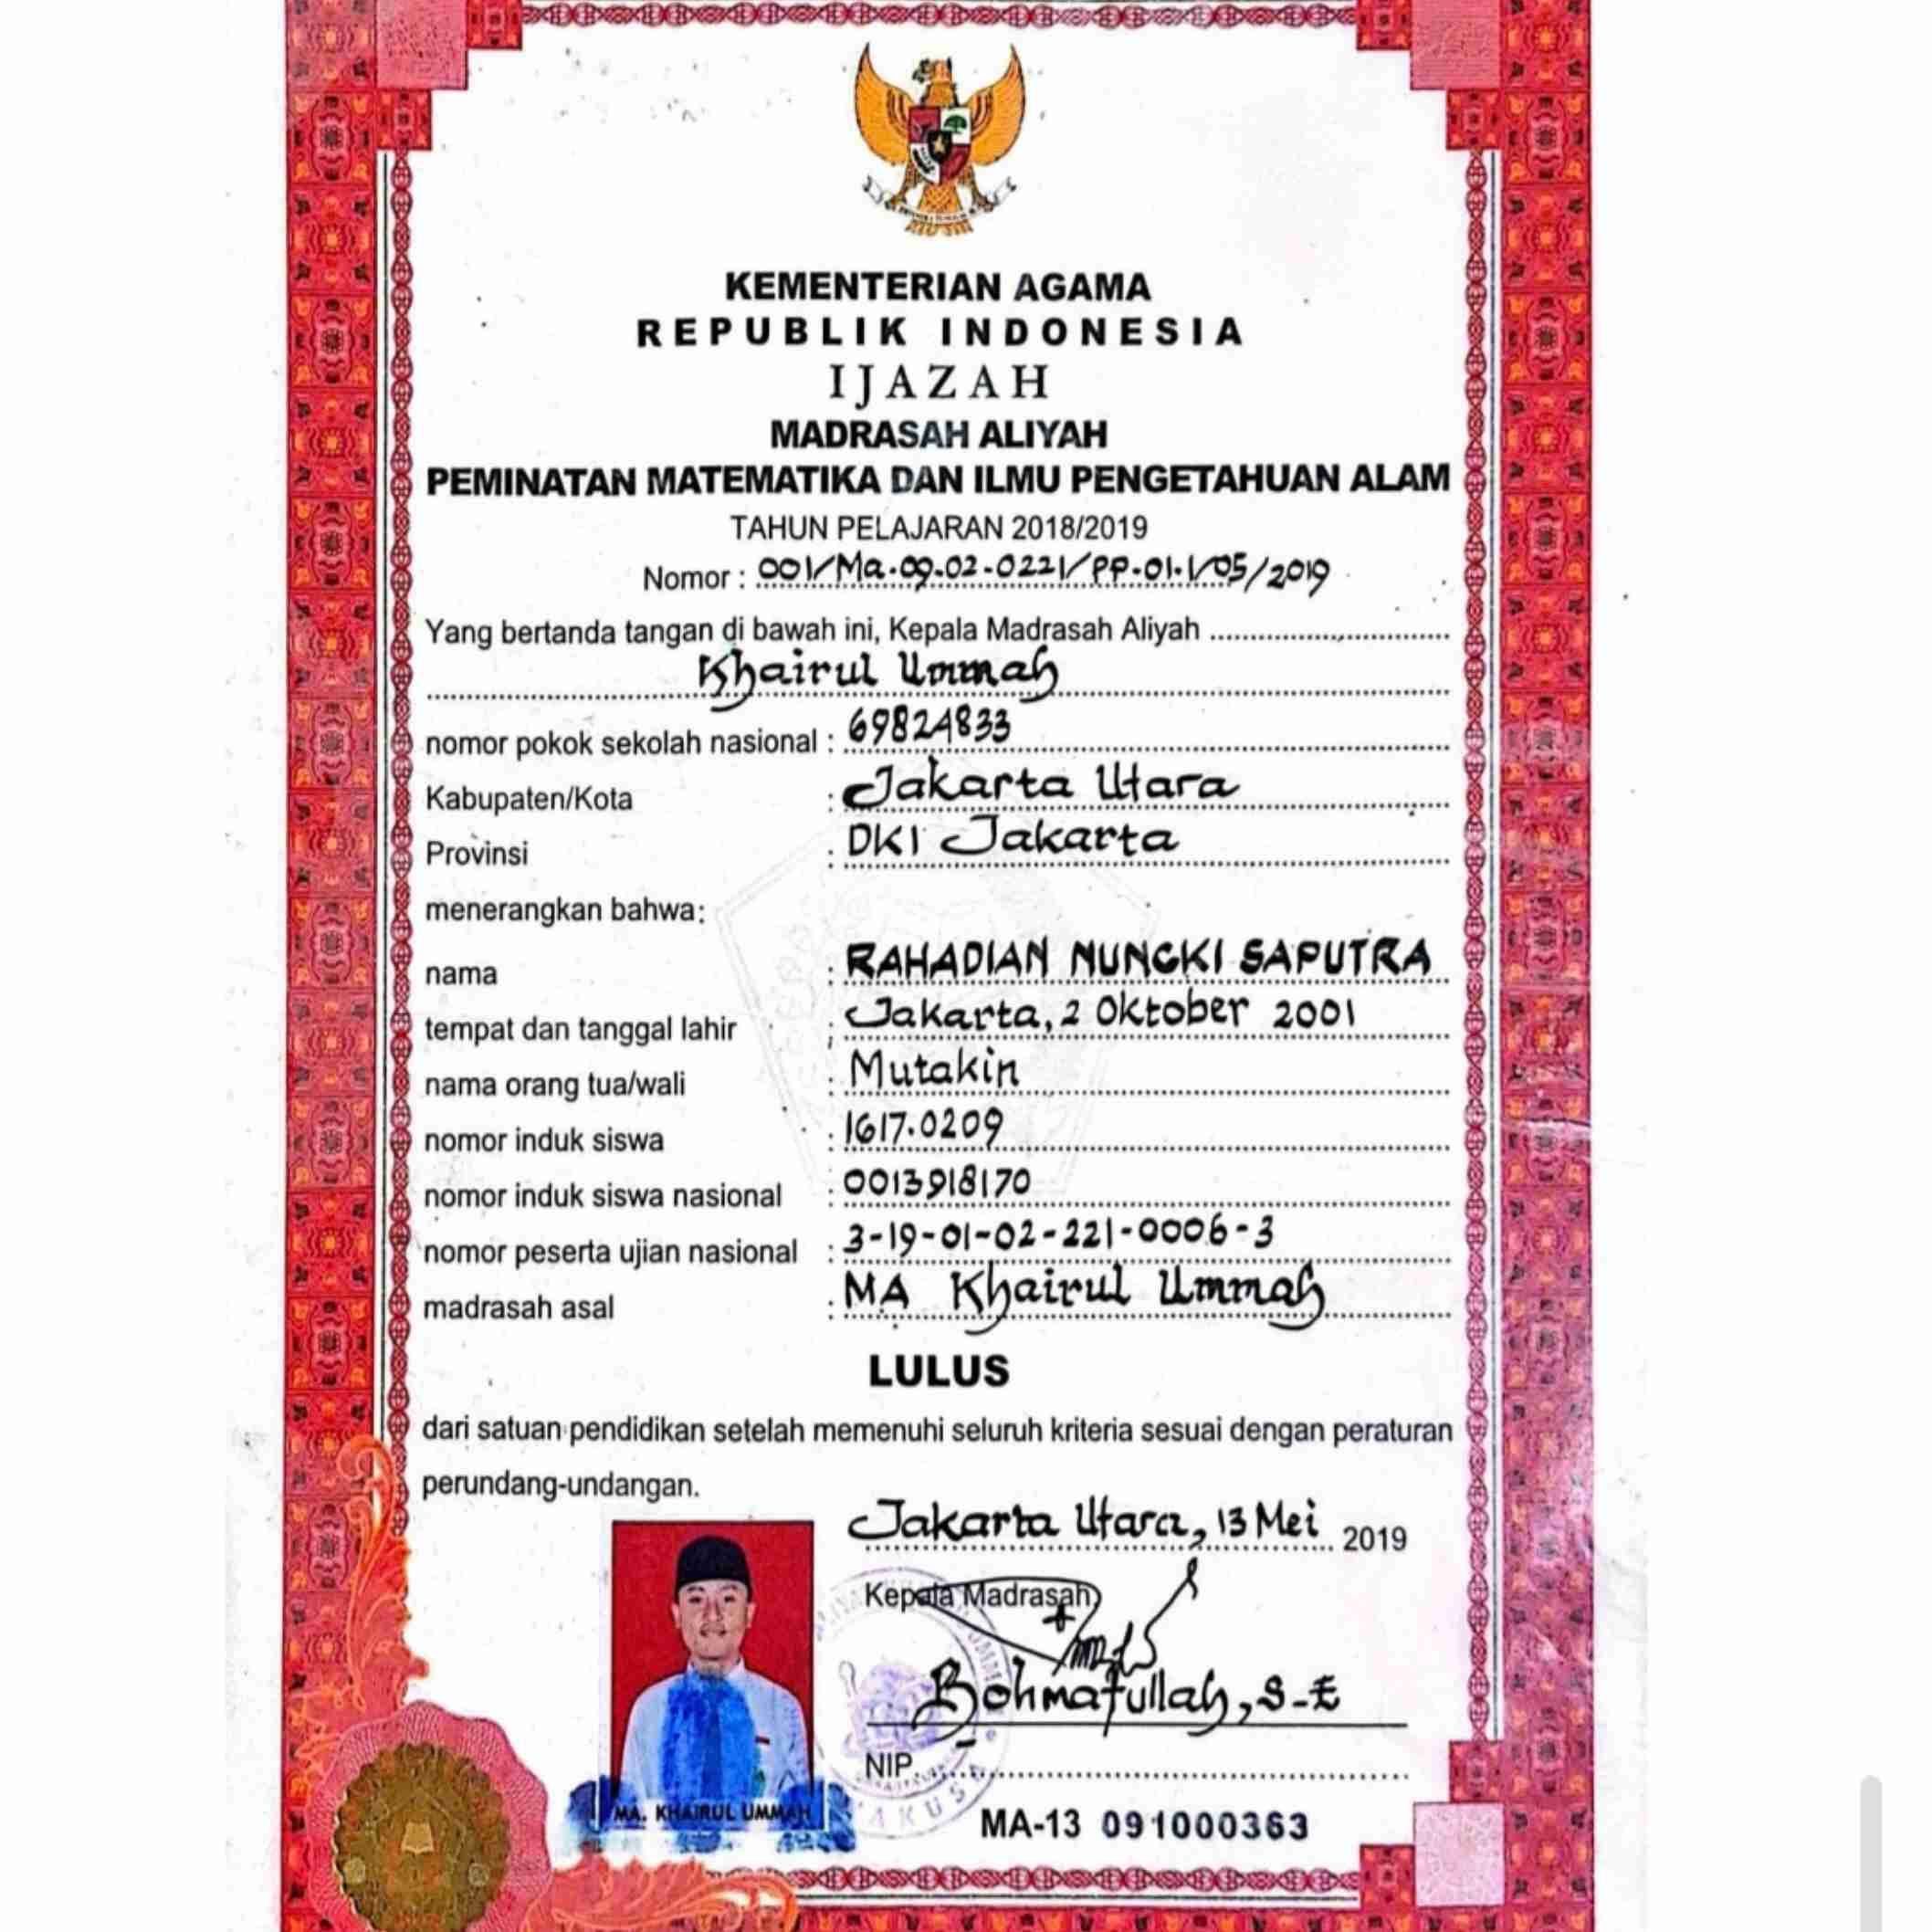 KEMENTERIAN AGAMA
REPUBLIK INDONESIA
IJAZAH
MADRASAH ALIYAH
PEMINATAN MATEMATIKA DAN ILMU PENGETAHUAN ALAM
TAHUN PELAJARAN 2018/2019
Nomor : 001/Ma.09.02-0221/PP.01.1/05/2019
Yang bertanda tangan di bawah ini, Kepala Madrasah Aliyah
Khairul Ummah
nomor pokok sekolah nasional : 69824833
Kabupaten/Kota : Jakarta Utara
Provinsi : DKI Jakarta
menerangkan bahwa:
nama : RAHADIAN NUNGKI SAPUTRA
tempat dan tanggal lahir : Jakarta, 2 Oktober 2001
nama orang tua/wali : Mutakin
nomor induk siswa : 1617.0209
nomor induk siswa nasional : 0013918170
nomor peserta ujian nasional : 3-19-01-02-221-0006-3
madrasah asal : MA Khairul Ummah
LULUS
dari satuan pendidikan setelah memenuhi seluruh kriteria sesuai dengan peraturan
perundang-undangan.
Jakarta Utara, 13 Mei 2019
Kepala Madrasah,
Rohmatullah, S-E
NIP.
MA. KHAIRUL UMMAH
MA-13 091000363